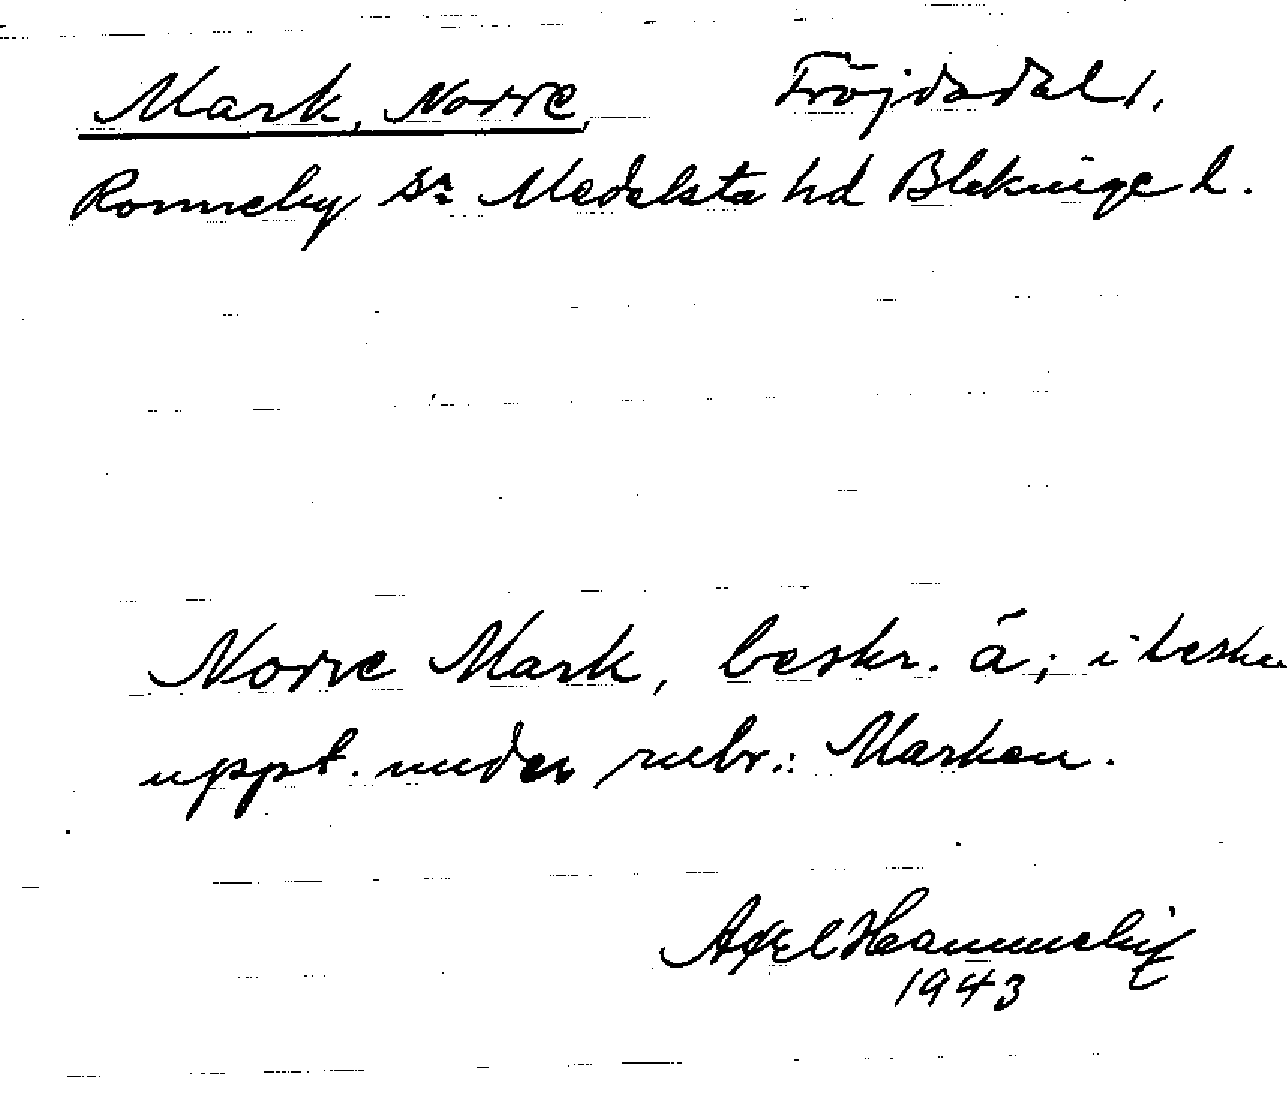 Mark, Norre, Fröjdsdal 1.
Ronneby sn Medelsta hd Blekinge l.
Norre Mark, beskr. å; i beskr
uppt. under rubr.: Marken.
Axel
1943